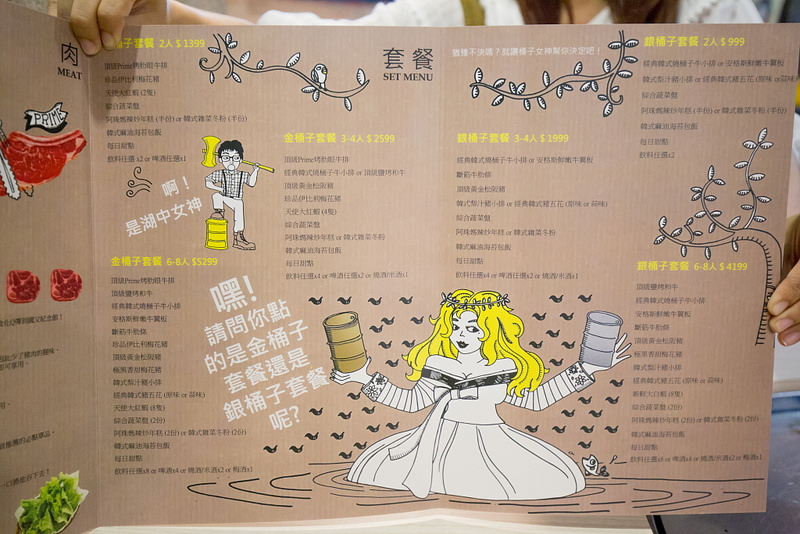 肉
MEAT
PRIME
桶子套餐 2人 $1399
頂級Prime烤肋眼牛排
珍品伊比利梅花豬
天使大紅蝦 (2隻)
綜合蔬菜盤
阿珠媽辣炒年糕 (半份) or 韓式雜菜冬粉 (半份)
韓式麻油海苔包飯
每日甜點
飲料任選 x2 or 啤酒任選x1
啊!
是湖中女神
金桶子套餐 6-8人 $5299
頂級Prime烤肋眼牛排
頂級鹽烤和牛
經典韓式燒桶子牛小排
安格斯鮮嫩牛翼板
斷筋牛肋條
珍品伊比利梅花豬
頂級黃金松阪豬
極黑香甜梅花豬
韓式梨汁豬小排
經典韓式豬五花 (原味 or 蒜味)
天使大紅蝦 (8隻)
綜合蔬菜盤 (2份)
阿珠媽辣炒年糕 (2份) or 韓式雜菜冬粉 (2份)
韓式麻油海苔包飯
每日甜點
飲料任選x8 or 啤酒x4 or 燒酒/米酒x2 or 梅酒x1
套餐
SET MENU
金桶子套餐 3-4人 $2599
頂級Prime烤肋眼牛排
經典韓式燒桶子牛小排 or 頂級鹽烤和牛
頂級黃金松阪豬
珍品伊比利梅花豬
天使大紅蝦 (4隻)
綜合蔬菜盤
阿珠媽辣炒年糕 or 韓式雜菜冬粉
韓式麻油海苔包飯
每日甜點
飲料任選x4 or 啤酒任選x2 or 燒酒/米酒x1
嘿!
請問你點
的是金桶子
套餐還是
銀桶子套餐
呢?
猶豫不決嗎?就讓桶子女神幫你決定吧!
銀桶子套餐 3-4人 $1999
經典韓式燒桶子牛小排 or 安格斯鮮嫩牛翼板
斷筋牛肋條
頂級黃金松阪豬
韓式梨汁豬小排 or 經典韓式豬五花 (原味 or 蒜味)
綜合蔬菜盤
阿珠媽辣炒年糕 or 韓式雜菜冬粉
韓式麻油海苔包飯
每日甜點
飲料任選x4 or 啤酒任選x2 or 燒酒/米酒x1
銀桶子套餐 2人 $999
經典韓式燒桶子牛小排 or 安格斯鮮嫩牛翼板
韓式梨汁豬小排 or 經典韓式豬五花 (原味 or 蒜味)
綜合蔬菜盤
阿珠媽辣炒年糕 (半份) or 韓式雜菜冬粉 (半份)
韓式麻油海苔包飯
每日甜點
飲料任選x2
銀桶子套餐 6-8人 $4199
頂級鹽烤和牛
經典韓式燒桶子牛小排
安格斯鮮嫩牛翼板
斷筋牛肋條
頂級黃金松阪豬
極黑香甜梅花豬
韓式梨汁豬小排
經典韓式豬五花 (原味 or 蒜味)
新鮮大白蝦 (8隻)
綜合蔬菜盤 (2份)
阿珠媽辣炒年糕 (2份) or 韓式雜菜冬粉 (2份)
韓式麻油海苔包飯
每日甜點
飲料任選x8 or 啤酒x4 or 燒酒/米酒x2 or 梅酒x1